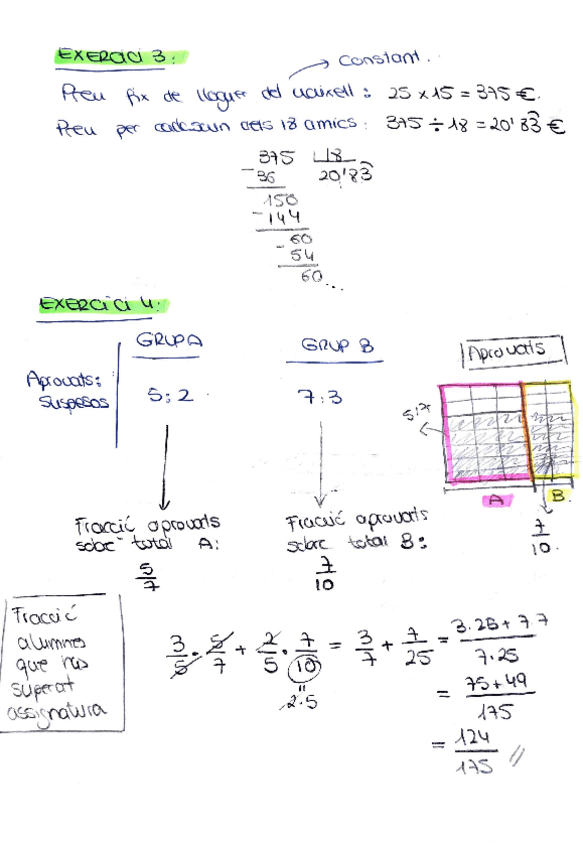 EXERCICI 3:
→ Constant.
Preu fix de lloguer del vaixell: 25 × 15 = 375 €.
Preu per cadascun dels 18 amics: 375 ÷ 18 = 20'83̂ €
375 | 18
- 36 20'83̂
150
- 144
60
- 54
60...
EXERCICI 4:
GRUP A GRUP B Aprovats
Aprovats: Suspesos 5:2 7:3
5/7
A B
Fracció aprovats sobre total A: 5/7
Fracció aprovats sobre total B: 7/10
7/10.
Fracció
alumnes
que has
superat
assignatura
3/5 · 5/7 + 2/5 · 7/10 = 3/7 + 7/25 = 3·25+7·7/7·25
" 2·5
= 75+49/175
= 124/175 //